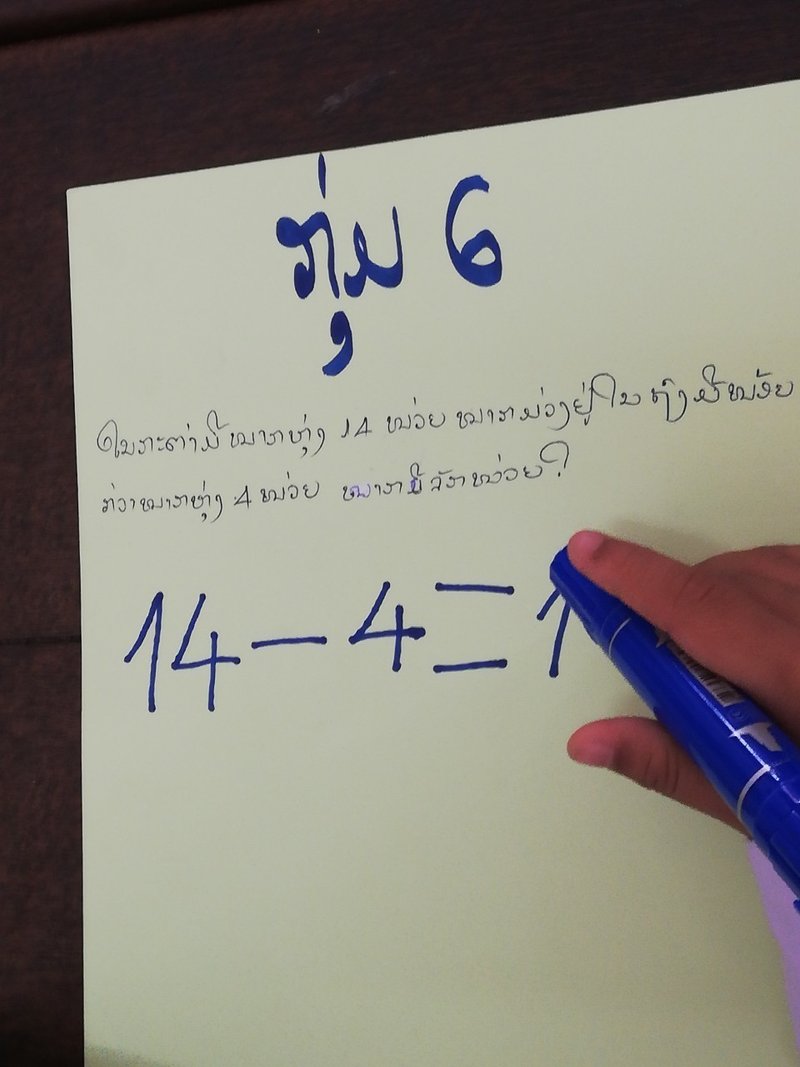 ກຸ່ມ 6
ໃນກະຕ່າມີໝາກຫຸ່ງ 14 ໜ່ວຍ ໝາກມ່ວງຢູ່ໃນຖົງມີໜ້ອຍ
ກ່ວາໝາກຫຸ່ງ 4 ໜ່ວຍ ໝາກມີຈັກໜ່ວຍ?
14 - 4 = 1